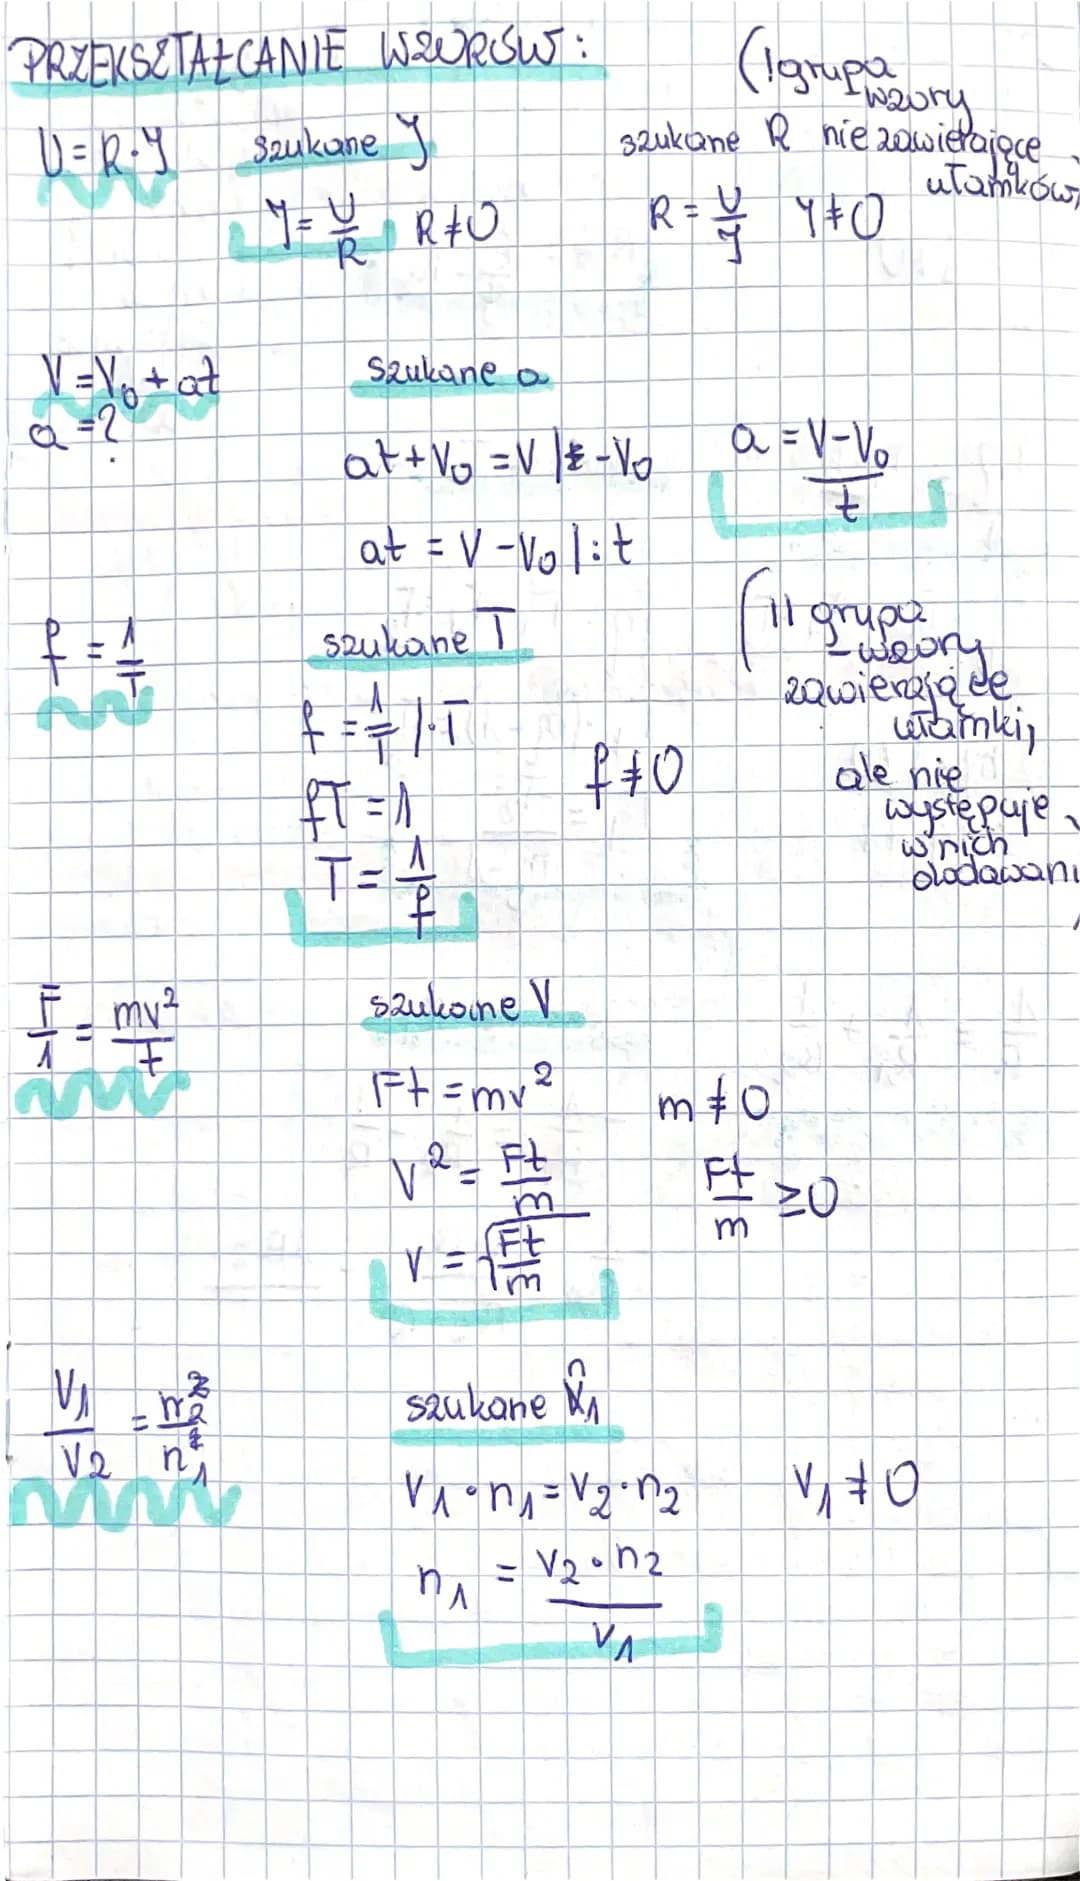 PRZEKSZTAŁCANIE WZORÓW:
(I grupa
wzory
nie zawierające
ułamków)
U = R·J szukane J
szukane R
J = U/R R≠0
R = U/J J≠0
V = V₀ + at szukane a
a = ?
at + V₀ = V |-V₀
a = V-V₀/t
at = V - V₀ |:t
f = 1/T szukane T
(II grupa
- wzory
zawierające
ułamki,
ale nie
występuje
w nich
dodawani
f = 1/T |·T
fT = 1
f≠0
T = 1/f
F/1 = mv²/t szukane V
Ft = mv² m≠0
V² = Ft/m Ft/m ≥0
V = √Ft/m
V₁/V₂ = n₂/n₁ szukane n₁
V₁·n₁ = V₂·n₂ V₁≠0
n₁ = V₂·n₂/V₁